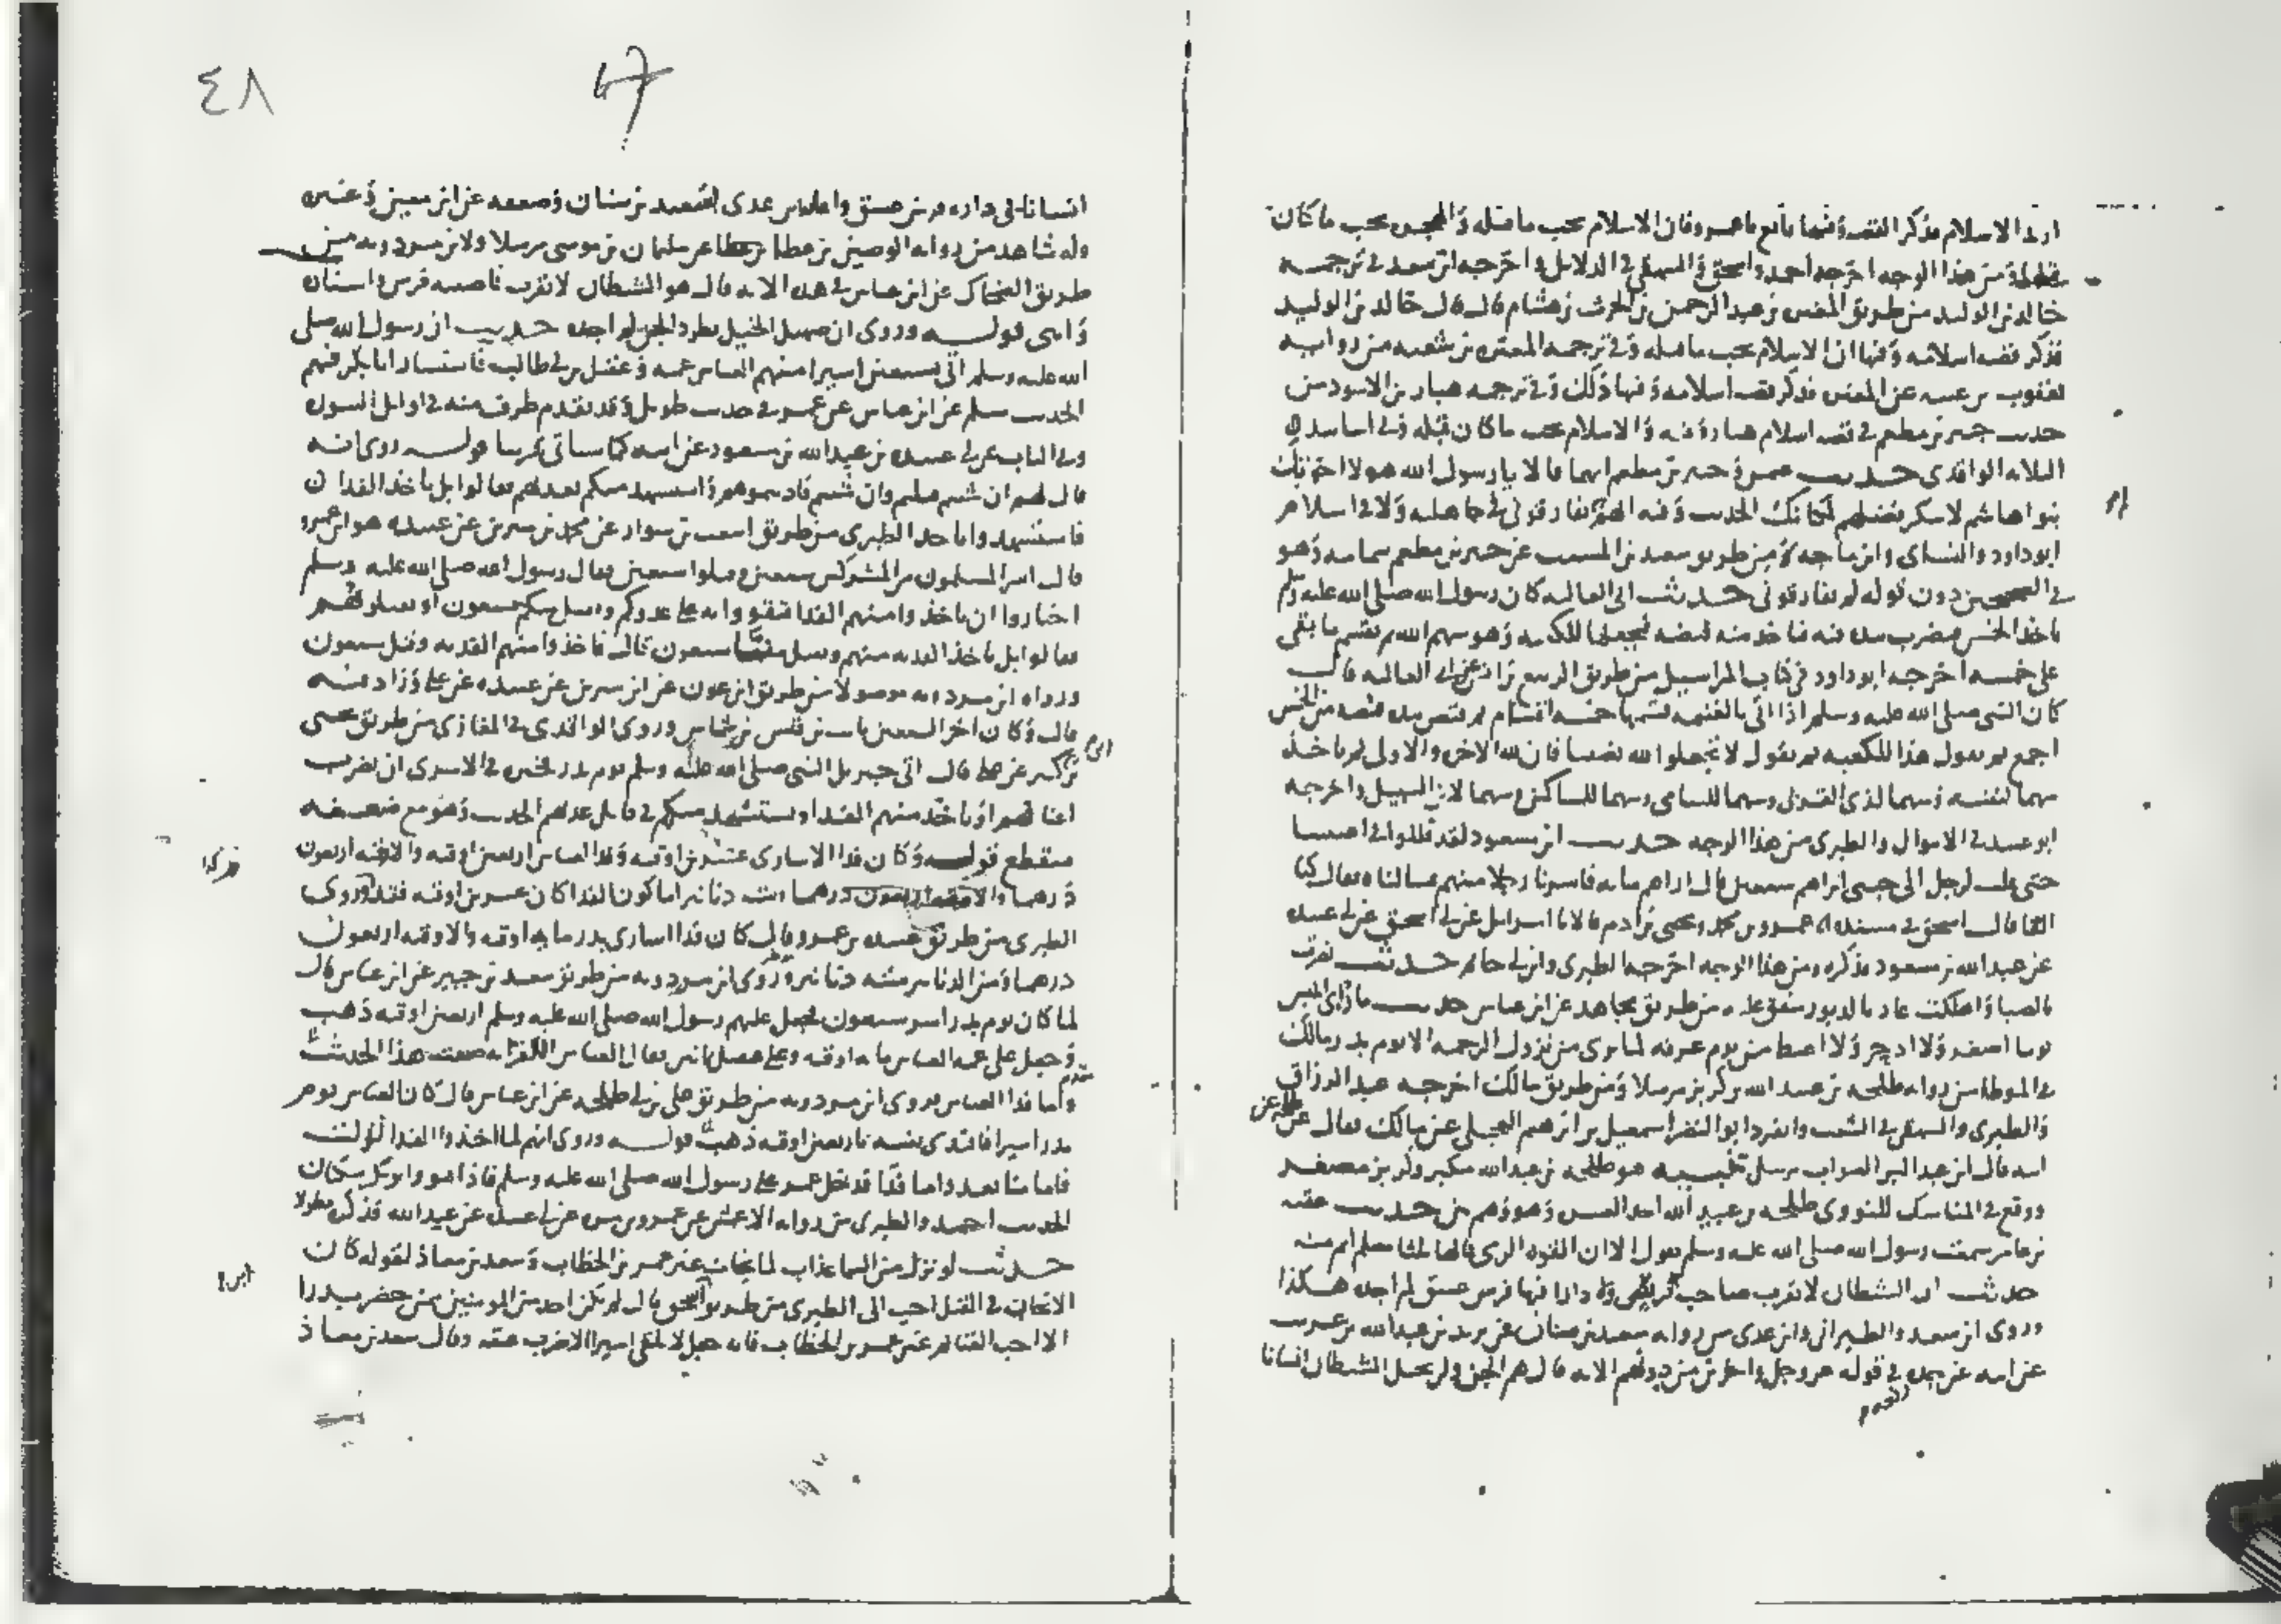 الاسلام فذكر القصة وفيها بايع يا عمرو فان الاسلام يجب ما قبله والهجرة تجب ما كان
قبلها ومن هذا الوجه اخرجه احمد واسحق والبيهقي في الدلائل واخرجه ابن سعد في ترجمة
خالد بن الوليد من طريق المغيرة بن عبد الرحمن بن الحرث بن هشام قال قال خالد بن الوليد
فذكر قصة اسلامه وفيها ان الاسلام يجب ما قبله وفي ترجمة المغيرة بن شعبة من رواية
يعقوب بن عتبة عن المغيرة فذكر قصة اسلامه وفيها ذلك وفي ترجمة هبار بن الاسود من
حديث جبير بن مطعم في قصة اسلام هبار وفيه والاسلام يجب ما كان قبله وفي اسانيد
الثلاثة الواقدي حديث عمر وجبير بن مطعم انهما قالا يا رسول الله هولا اخوتك
بنوا هاشم لا ينكر فضلهم لمكانك الحديث وفيه انهم لم يفارقوني في جاهلية ولا في اسلام
ابو داود والنساي وابن ماجه من طريق سعيد بن المسيب عن جبير بن مطعم بتمامه وهو
في الصحيح من دون قوله لم يفارقوني حديث ابي العالية كان رسول الله صلى الله عليه وسلم
ياخذ الخمس فيضرب بيده فيه فياخذ منه قبضة فيجعلها للكعبة وهو سهم الله ثم يقسم ما بقي
على خمسة اخرجه ابو داود في كتاب المراسيل من طريق الربيع بن انس عن ابي العالية قال
كان النبي صلى الله عليه وسلم اذا اتي بالغنيمة قسمها خمسة اقسام ثم يقبض بيده قبضة من الخمس
اجمع ثم يقول هذا للكعبة ثم يقول لا تجعلوا لله نصيبا فان لله الاخرة والاولى ثم ياخذ
سهما لنفسه وسهما لذي القربى وسهما لليتامى وسهما للمساكين وسهما لابن السبيل واخرجه
ابو عبيد في الاموال والطبري من هذا الوجه حديث ابن مسعود لقد قللوا في اعيننا
حتى قلت لرجل الى جنبي اتراهم سبعين قال اراهم مائة فاسرنا رجلا منهم فسالناه فقال كنا
الفا قال اسحق في مسنده عمرو بن محمد ويحيى بن ادم قالا ثنا اسرائيل عن ابي اسحق عن ابي عبيدة
عن عبد الله بن مسعود فذكره ومن هذا الوجه اخرجه الطبري وابن ابي حاتم حديث نصرت
بالصبا واهلكت عاد بالدبور متفق عليه من طريق مجاهد عن ابن عباس حديث ما رئي ابليس
يوما اصغر ولا ادحر ولا اغيظ من يوم عرفة لما يرى من نزول الرحمة الا يوم بدر مالك
في الموطا من رواية طلحة بن عبيد الله بن كريز مرسلا ومن طريق مالك اخرجه عبد الرزاق
والطبري والبيهقي في الشعب وانفرد ابو النضر اسمعيل بن ابراهيم العجلي عن مالك فقال عن طلحة عن
ابيه قال ابن عبد البر الصواب مرسل تنبيه هو طلحة بن عبيد الله مكبر وكريز مصغر
ووقع في المناسك للنووي طلحة بن عبيد الله احد العشرة وهو وهم من حديث عقبة
بن عامر سمعت رسول الله صلى الله عليه وسلم يقول الا ان القوة الرمي قالها ثلثا مسلم اتم منه
حديث ان الشيطان لا يقرب صاحب فرس ولا دارا فيها فرس عتيق لم اجده هكذا
وروى ابن سعد والطبراني وابن عدي من رواية سعيد بن سنان عن يزيد بن عبد الله بن عريب
عن ابيه عن جده في قوله عز وجل واخرين من دونهم الاية قال هم الجن ولن يخبل الشيطان انسانا
٤٨
47
انسانا في داره فرس عتيق واعله ابن عدي بسعيد بن سنان وضعفه عن ابن معين وغيره
وله شاهد من رواية الوضين بن عطا عن سليمان بن موسى مرسلا ولابن مردويه من
طريق الضحاك عن ابن عباس في هذه الاية قال هو الشيطان لا يقرب ناصية فرس واسناده
واهي قوله وروى ان صهيل الخيل يطرد الجن لم اجده حديث ان رسول الله صلى
الله عليه وسلم اتي بسبعين اسيرا منهم العباس عمه وعقيل بن ابي طالب فاستشار ابا بكر فيهم
الحديث مسلم عن ابن عباس عن عمر في حديث طويل وقد تقدم طرف منه في اوائل السورة
وفي الباب عن ابي عبيدة بن عبد الله بن مسعود عن ابيه كما سياتي قريبا قوله روى انه
قال لهم ان شئتم قتلتم وان شئتم فاديتموهم واستشهد منكم بعدتهم فقالوا بل ناخذ الفدا
فاستشهدوا باحد الطبري من طريق اشعث بن سوار عن محمد بن سيرين عن عبيدة هو ابن عمرو
قال اسر المسلمون من المشركين سبعين وقتلوا سبعين فقال رسول الله صلى الله عليه وسلم
اختاروا ان تاخذوا منهم الفدا فتقووا به على عدوكم ويقتل منكم سبعون او تقتلوهم
فقالوا بل ناخذ الفدية منهم ويقتل منا سبعون قال فاخذوا منهم الفدية وقتل سبعون
ورواه ابن مردويه موصولا من طريق ابن عون عن ابن سيرين عن عبيدة عن علي وزاد فيه
قال وكان اخر السبعين ثابت بن قيس بن شماس وروى الواقدي في المغازي من طريق يحيى
بن ابي كثير عن علي قال اتى جبريل النبي صلى الله عليه وسلم يوم بدر فخيره في الاسرى ان يضرب
اعناقهم او ياخذ منهم الفدا ويستشهد منكم في قابل عدتهم الحديث وهو مع ضعفه
منقطع قوله وكان فدا الاسارى عشرين اوقية وفدا العباس اربعين اوقية والاوقية اربعون
درهما وستة دنانير اما كون الفدا كان عشرين اوقية فقد روى
الطبري من طريق عبيدة بن عمرو قال كان فدا اسارى بدر مائة اوقية والاوقية اربعون
درهما ومن الدنانير ستة دنانير وروى ابن مردويه من طريق سعيد بن جبير عن ابن عباس قال
لما كان يوم بدر اسر سبعون فجعل عليهم رسول الله صلى الله عليه وسلم اربعين اوقية ذهب
وجعل على عمه العباس مائة اوقية وعلى عقيل ثمانين فقال العباس للقرابة صنعت هذا الحديث
واما فدا العباس فروى ابن مردويه من طريق علي بن ابي طلحة عن ابن عباس قال كان العباس يوم
بدر اسيرا فافتدى نفسه باربعين اوقية ذهب قوله وروى انهم لما اخذوا الفدا نزلت
فاما منا بعد واما فدا فدخل عمر على رسول الله صلى الله عليه وسلم فاذا هو وابو بكر يبكيان
الحديث احمد والطبري من رواية الاعمش عن عمرو بن مرة عن ابي عبيدة عن عبد الله فذكره مطولا
حديث لو نزل من السما عذاب لما نجا منه غير عمر بن الخطاب وسعد بن معاذ لقوله كان
الاثخان في القتل احب الي الطبري من طريق ابن اسحق قال لم يكن احد من المومنين ممن حضر بدرا
الا احب الغنائم غير عمر بن الخطاب فانه جعل لا يلقى اسيرا الا ضرب عنقه وقال سعد بن معاذ